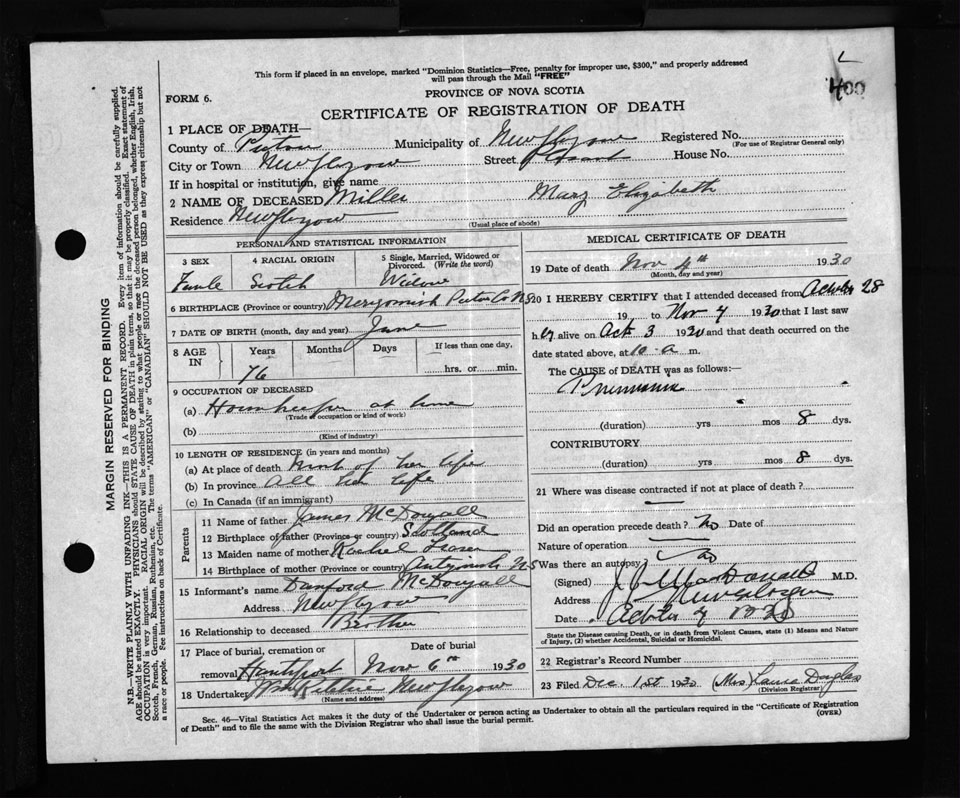 L
400
This form if placed in an envelope, marked "Dominion Statistics—Free, penalty for improper use, $300," and properly addressed
will pass through the Mail "FREE"
PROVINCE OF NOVA SCOTIA
FORM 6.
CERTIFICATE OF REGISTRATION OF DEATH
1 PLACE OF DEATH—
County of Pictou Municipality of New Glasgow Registered No.
(For use of Registrar General only)
City or Town New Glasgow Street House No.
If in hospital or institution, give name
2 NAME OF DECEASED Miller Mary Elizabeth
Residence New Glasgow
(Usual place of abode)
PERSONAL AND STATISTICAL INFORMATION
3 SEX 4 RACIAL ORIGIN 5 Single, Married, Widowed or Divorced. (Write the word)
Female Scotch Widow
6 BIRTHPLACE (Province or country) Merigomish Pictou Co NS
7 DATE OF BIRTH (month, day and year) June
8 AGE IN Years Months Days If less than one day,
76 hrs. or min.
9 OCCUPATION OF DECEASED
(a) Housekeeper at home
(Trade or occupation or kind of work)
(b)
(Kind of industry)
10 LENGTH OF RESIDENCE (in years and months)
(a) At place of death most of her life
(b) In province All her life
(c) In Canada (if an immigrant)
Parents
11 Name of father James McDougall
12 Birthplace of father (Province or country) Scotland
13 Maiden name of mother Rachel Fraser
14 Birthplace of mother (Province or country) Antigonish NS
15 Informant's name Danford McDougall
Address New Glasgow
16 Relationship to deceased Brother
17 Place of burial, cremation or Date of burial
removal Nov 6th 1930
18 Undertaker New Glasgow
(Name and address)
MEDICAL CERTIFICATE OF DEATH
19 Date of death Nov 4th 1930
(Month, day and year)
20 I HEREBY CERTIFY that I attended deceased from 28
19 , to Nov 4 1930 that I last saw
her alive on 3 1930 and that death occurred on the
date stated above, at 10 a m.
The CAUSE of DEATH was as follows:—
Pneumonia
(duration) yrs mos 8 dys.
CONTRIBUTORY
(duration) yrs mos 8 dys.
21 Where was disease contracted if not at place of death?
Did an operation precede death? No Date of
Nature of operation
Was there an autopsy no
(Signed) MacDonald M.D.
Address New Glasgow
Date
State the Disease causing Death, or in death from Violent Causes, state (1) Means and Nature
of Injury, (2) whether Accidental, Suicidal or Homicidal.
22 Registrar's Record Number
23 Filed Dec. 1st 1930 (Mrs) Laura Douglas
(Division Registrar)
Sec. 46—Vital Statistics Act makes it the duty of the Undertaker or person acting as Undertaker to obtain all the particulars required in the "Certificate of Registration
of Death" and to file the same with the Division Registrar who shall issue the burial permit.
(OVER)
MARGIN RESERVED FOR BINDING
N.B.—WRITE PLAINLY WITH UNFADING INK—THIS IS A PERMANENT RECORD. Every item of information should be carefully supplied.
AGE should be stated EXACTLY. PHYSICIANS should STATE CAUSE OF DEATH in plain terms, so that it may be properly classified. Exact statement of
OCCUPATION is very important. RACIAL ORIGIN will be described by stating to what people or race the deceased person belonged, whether English, Irish,
Scotch, French, German, Russian, Ruthenian, etc. The terms "AMERICAN" or "CANADIAN" SHOULD NOT BE USED as they express citizenship but not
a race or people. See instructions on back of Certificate.